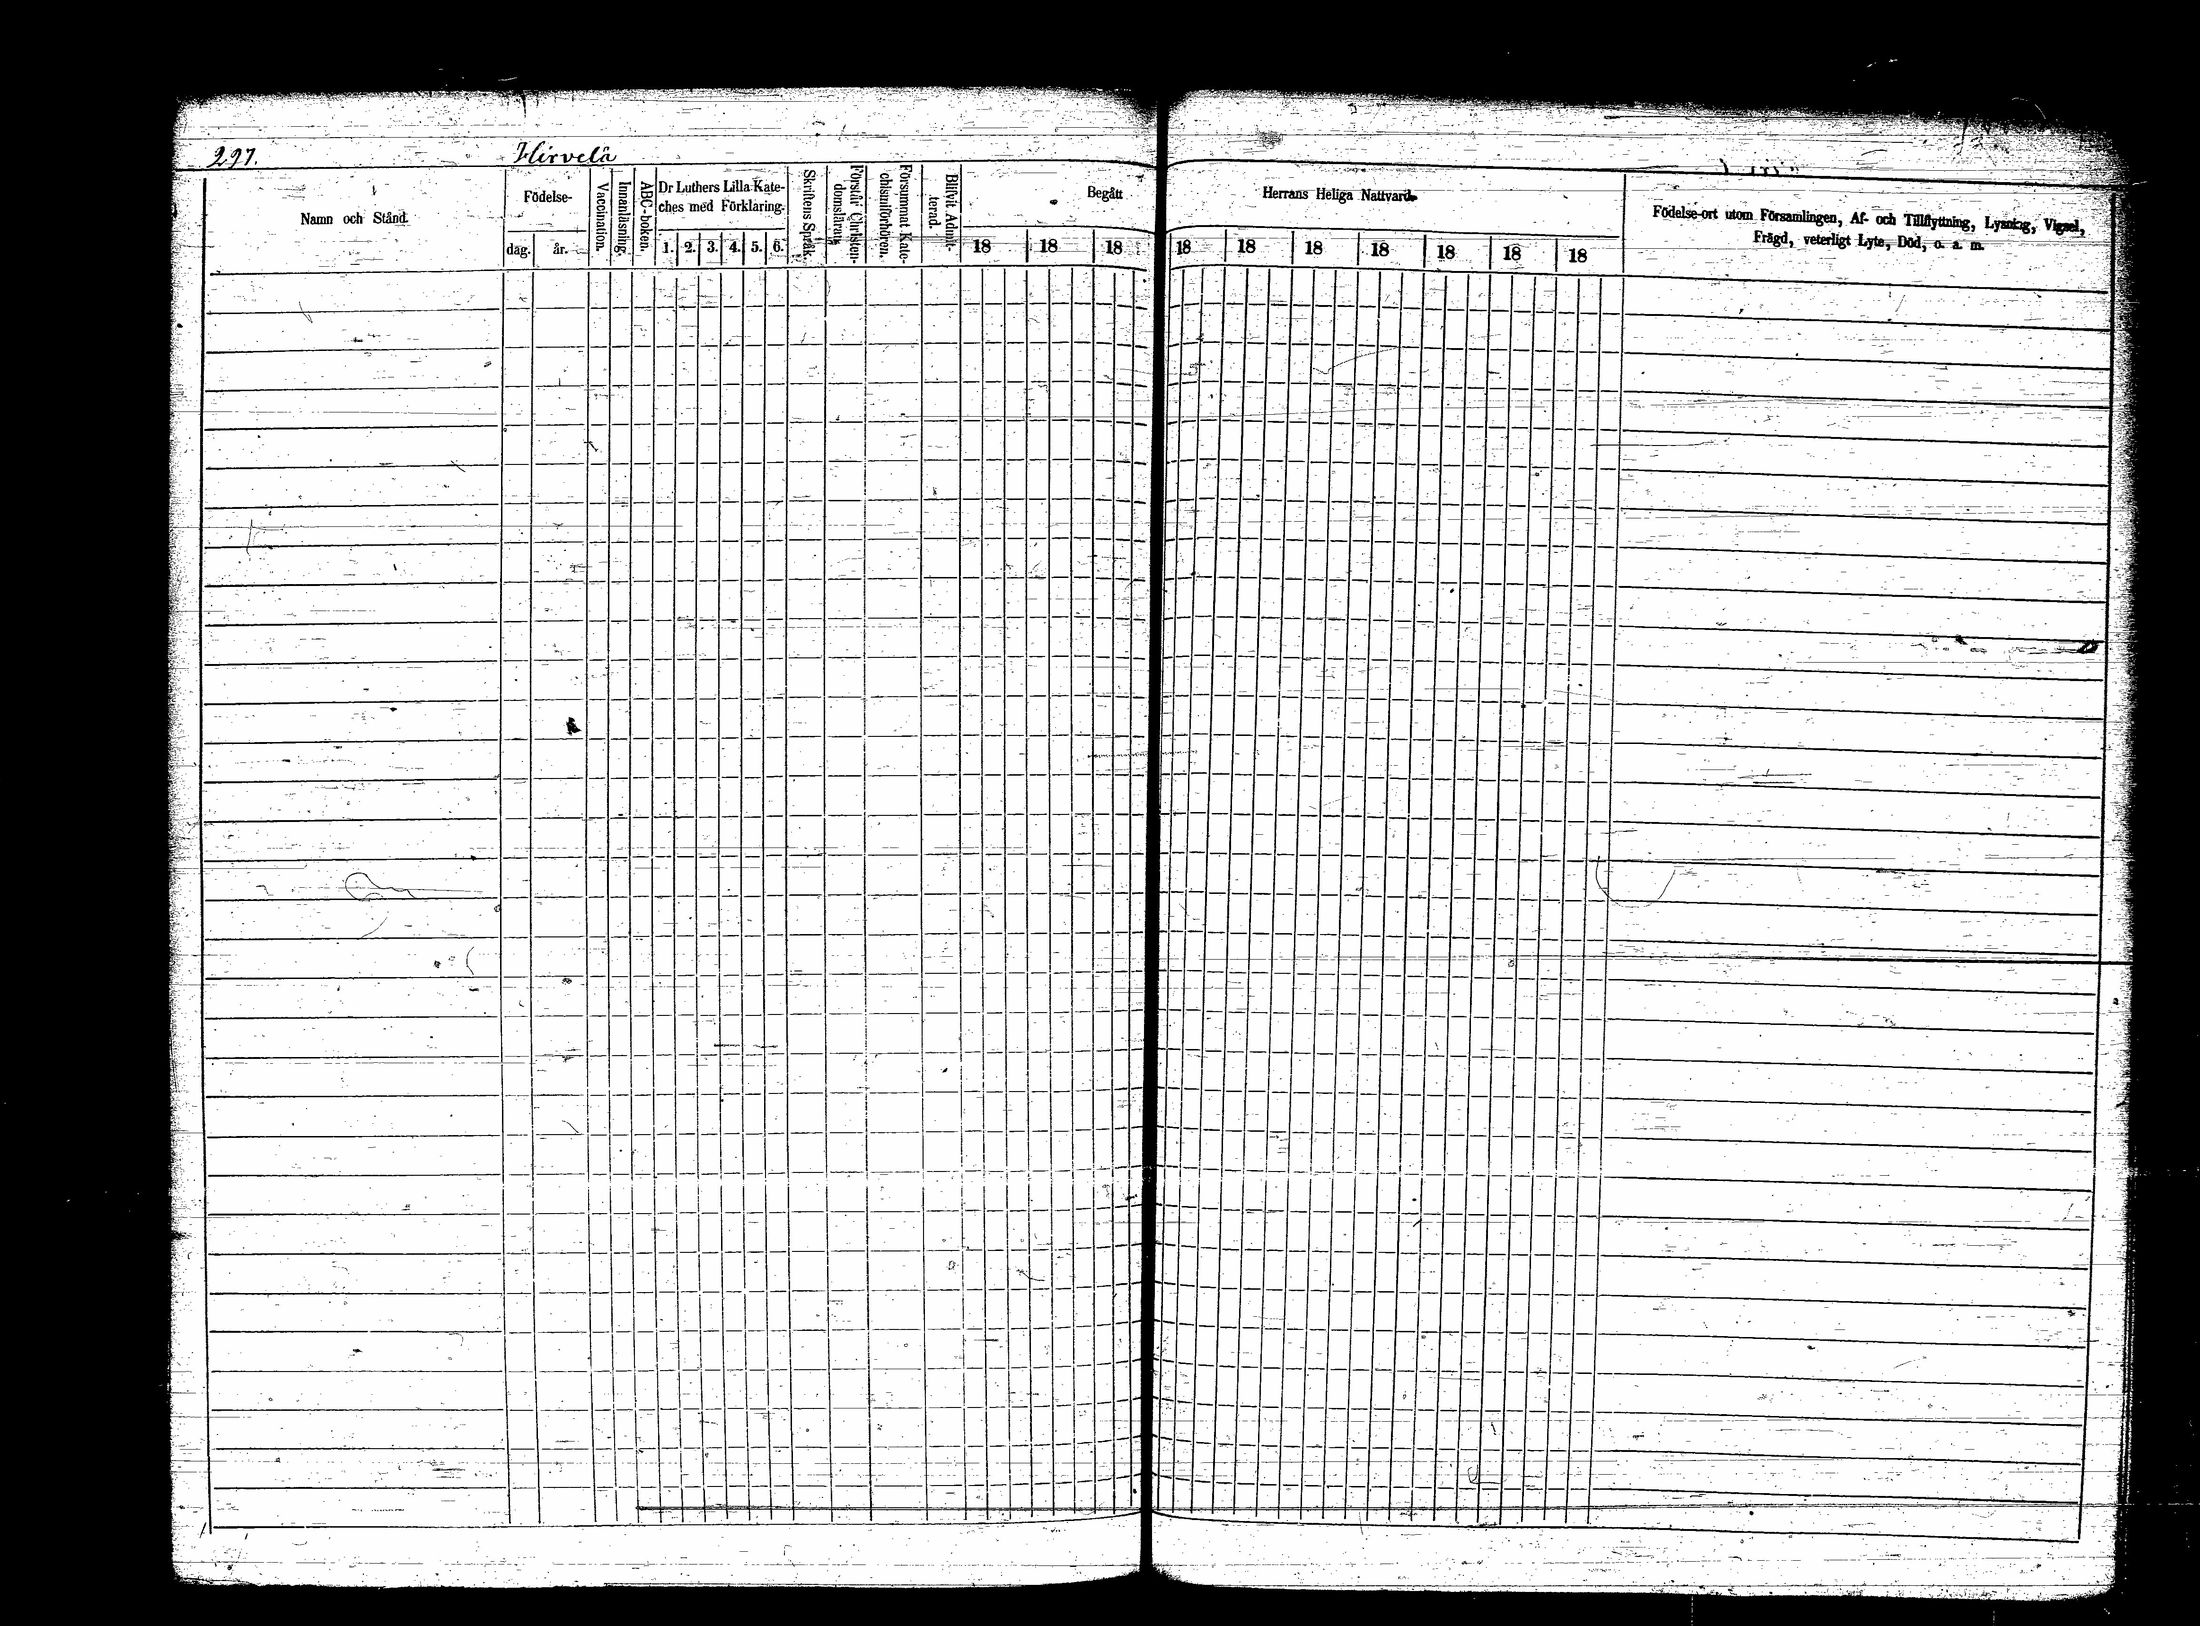 297. Hirvelä
Namn och Stånd.
Födelse-
dag. år.
Vaccination.
Innanläsning.
ABC-boken.
Dr Luthers Lilla Kate-
ches med Förklaring.
1. 2. 3. 4. 5. 6.
Skriftens Språk.
Förstår Christen-
domsläran.
Försummat Kate-
chismiförhören.
Blifvit Admit-
terad.
Begått
18 18 18
Herrans Heliga Nattvard.
18 18 18 18 18 18 18
Födelse-ort utom Församlingen, Af- och Tillflyttning, Lysning, Vigsel,
Frägd, veterligt Lyte, Död, o. a. m.